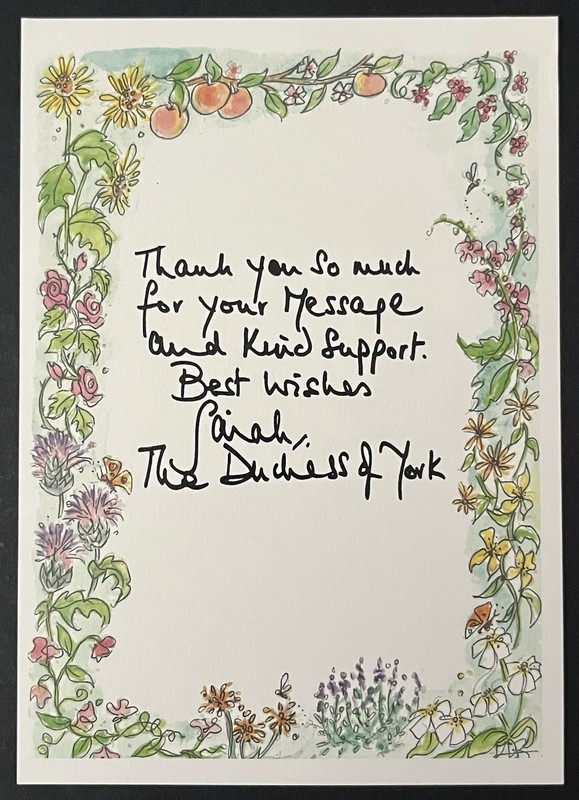 Thank you so much
for your Message
and Kind Support.
Best Wishes
Sarah,
The Duchess of York